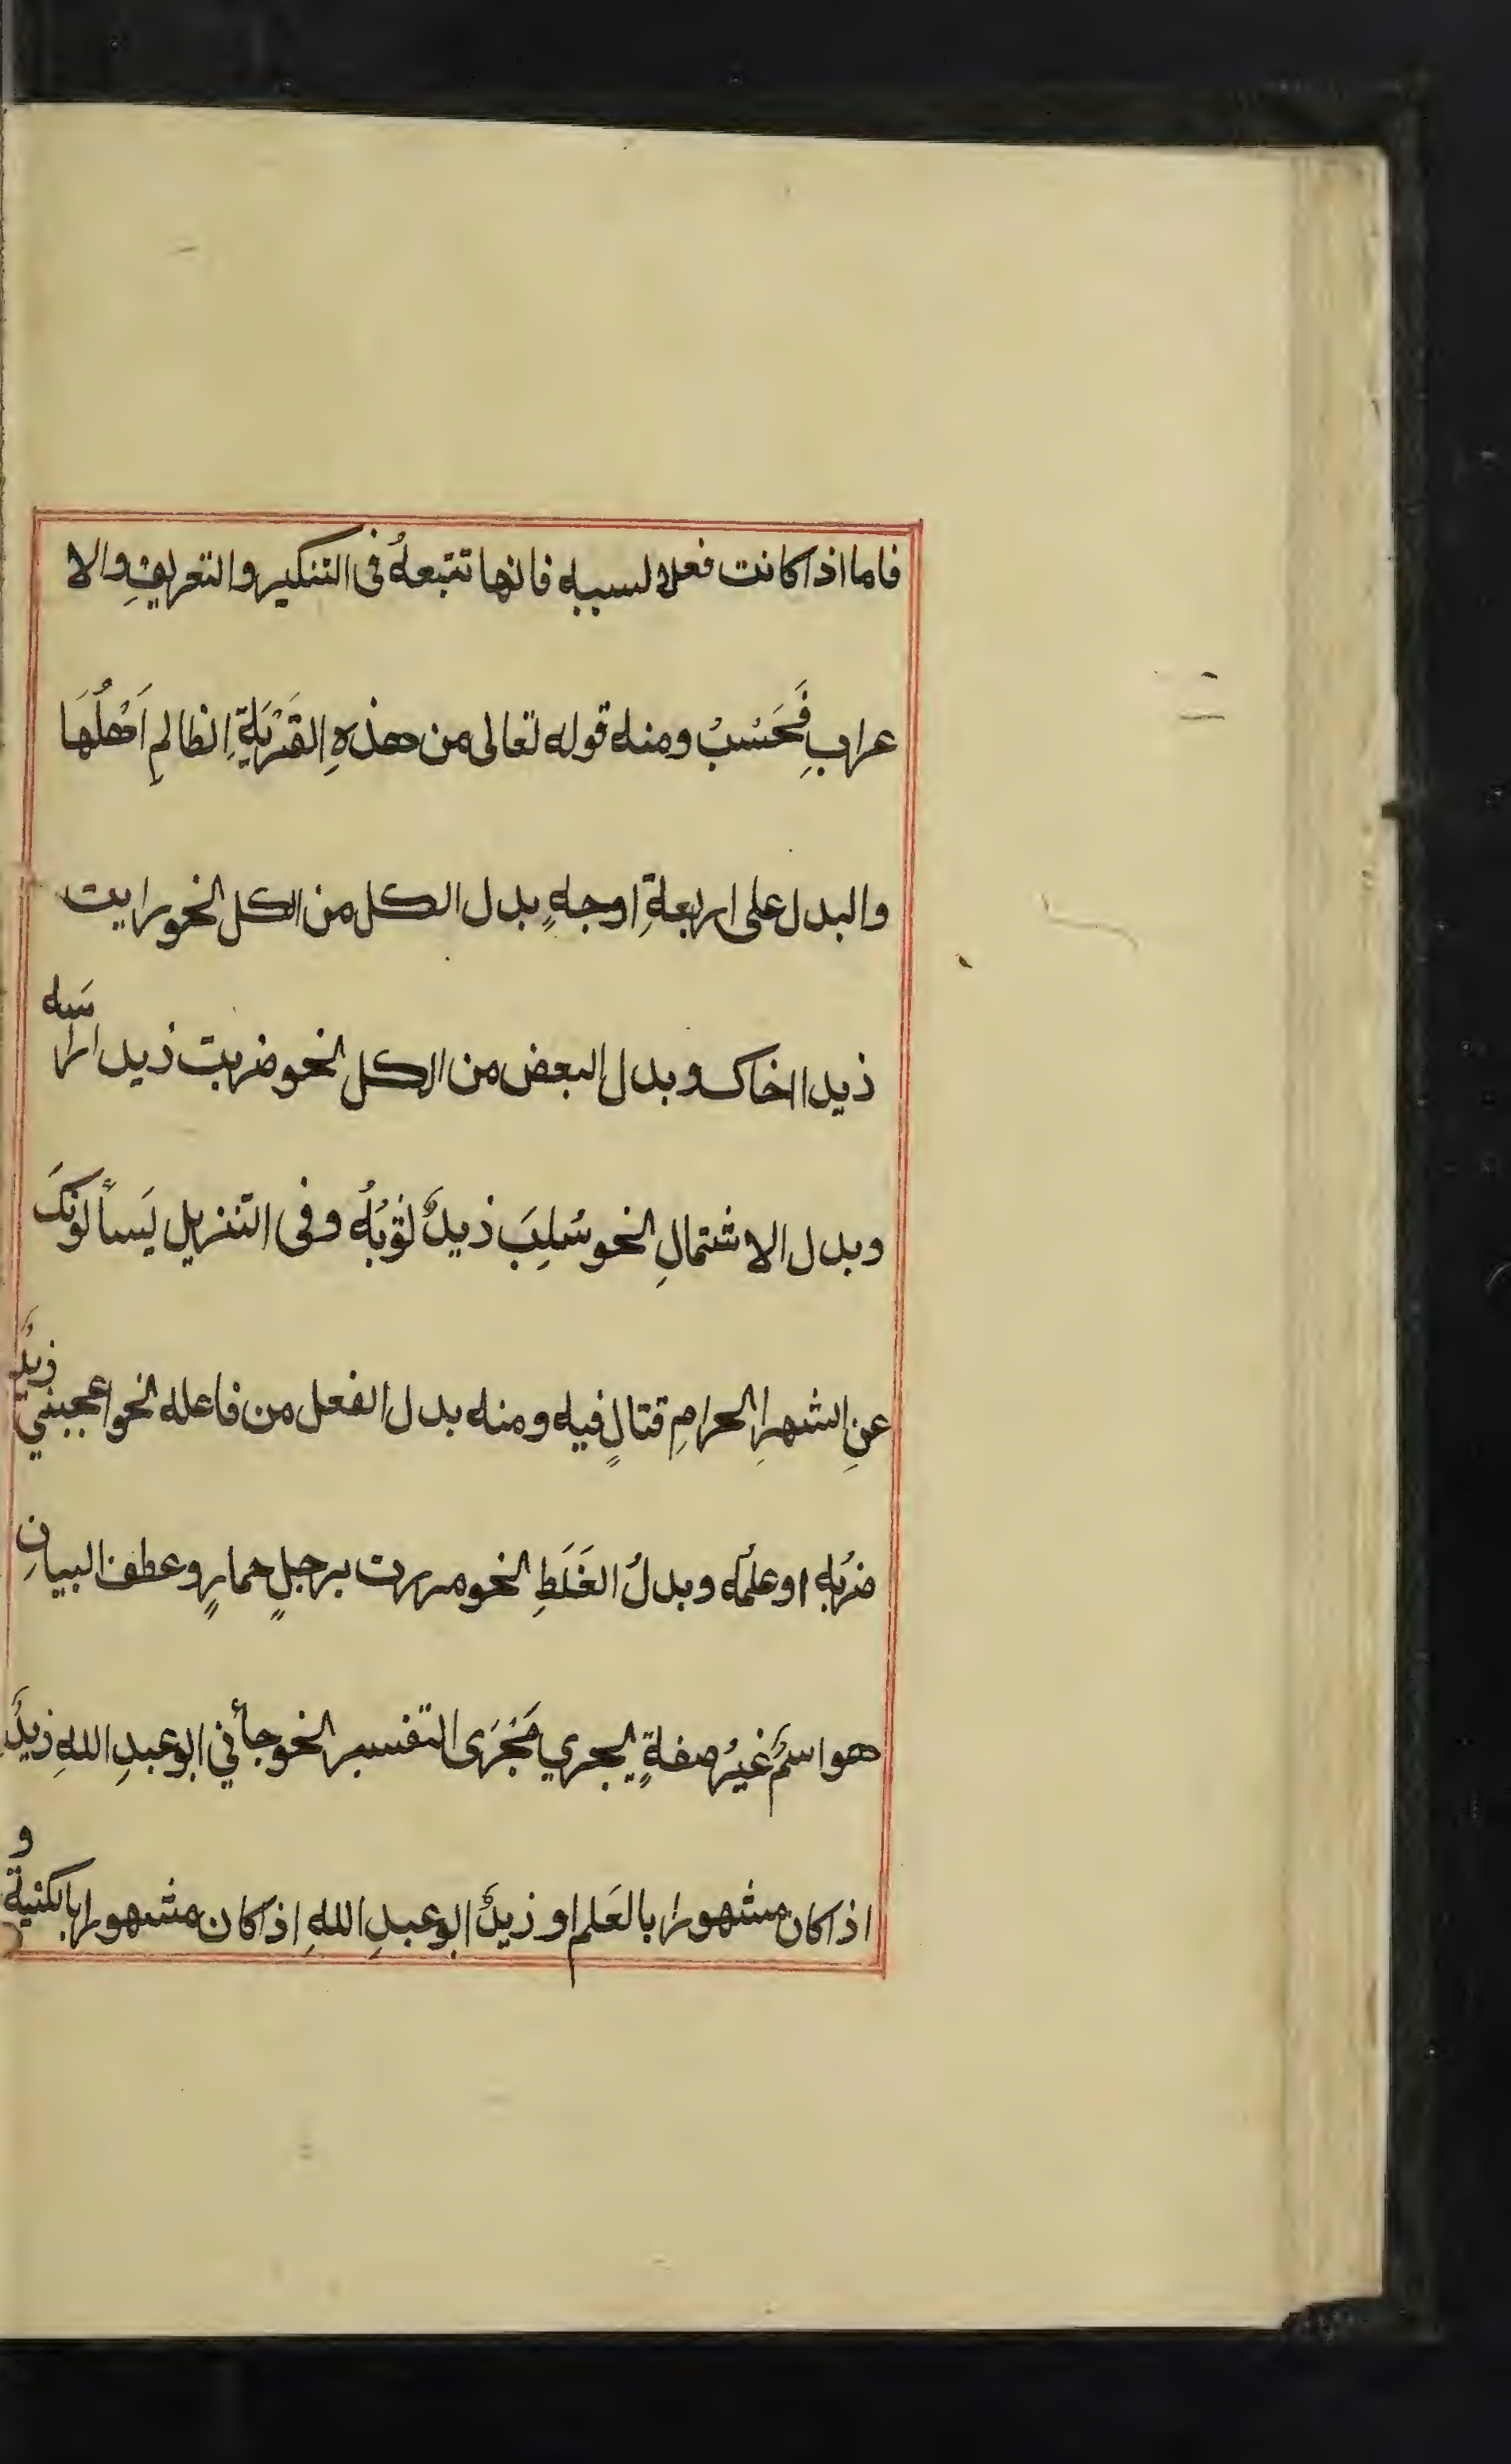 فاما اذا كانت فعلا لسببه فانها تتبعهُ فى التنكير والتعريفِ والا
عرابِ فَحَسْبُ ومنه قوله تعالى من هذهِ القَرْيَةِ الظالمِ اَهْلُهَا
والبدل على اربعةِ اوجهٍ بدل الكل من الكل نحو رايت
ذيدا اخاك وبدل البعض من الكل نحو ضربت ذيدا رأسَه
وبدل الاشتمالِ نحو سُلِبَ ذيدٌ ثَوْبَهُ وفى التنزيل يَسأَلونَكَ
عنِ الشهرِ الحرامِ قتالٍ فيه ومنه بدل الفعل من فاعله نحو اعجبني ذيدٌ
ضربُه اوعلمُه وبدلُ الغَلَطِ نحو مررت برجلٍ حمارٍ وعطف البيانِ
هو اسمٌ غيرُ صفةٍ يجري مَجْرَى التفسير نحو جأني ابوعبدِ اللهِ ذيدٌ
اذا كان مشهورا بالعَلم او ذيدٌ ابوعبدِ اللهِ اذا كان مشهورا بالكنيةِ و